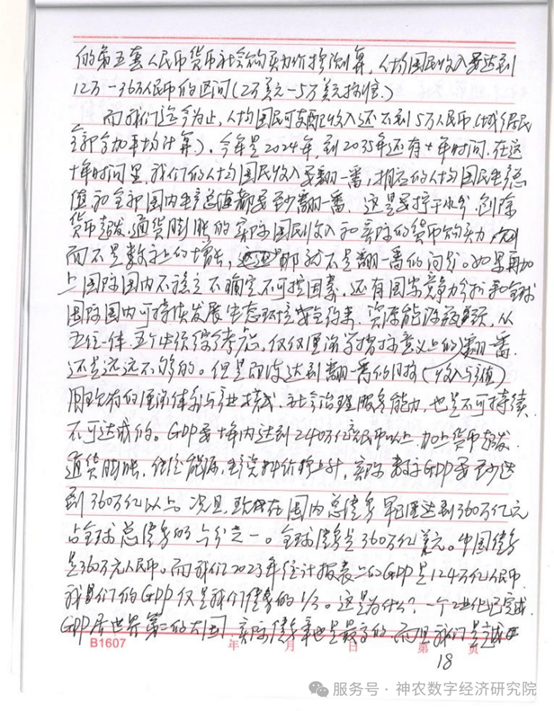 的第五套人民币货币社会购买力价格测算，人均国民收入要达到
12万—36万人民币的区间(2万美元—5万美元标准。)
而我们迄今为止，人均国民可支配收入还不到5万人民币(城乡居民
全部加平均计算)，今年是2024年，到2035年还有十年时间，在这
十年时间里，我们的人均国民收入要翻一番，相应的人均国民生产总
值和全部国内生产总值都要至少翻一番，这是要挤干水分，剔除
货币超发、通货膨胀的实际国民收入和实际的货币购买力
而不是数字上的增长，那就不是翻一番的问题。如果再加
上国际国内不稳定不确定不可控因素，还有国家竞争力 和全球
国际国内可持续发展生态环境安全约束，资源能源 从
五位一体 五个 考虑，仅仅 意义上的翻一番，
还是远远不够的。但是即使达到翻一番的目标(收入与产值)
用现有的 体系与 社会治理服务能力，也是不可持续
不可达成的。GDP要十年内达到240万亿人民币以上，加上货币超发、
通货膨胀，能源、生产资料价格上升，实际数字GDP要至少达
到360万亿以上。况且，现在国内总债务早已经达到360万亿元
占全球总债务的六分之一。全球债务是360万亿美元。中国债务
是360万元人民币。而我们2023年统计报表上的GDP是124万亿人民币
我们的GDP仅是我们债务的1/3。这是为什么？一个工业化已完成
GDP居世界第二的大国，实际债务率也是最高的，而且我们是
B1607 年 月 日 第 页
18
服务号·神农数字经济研究院